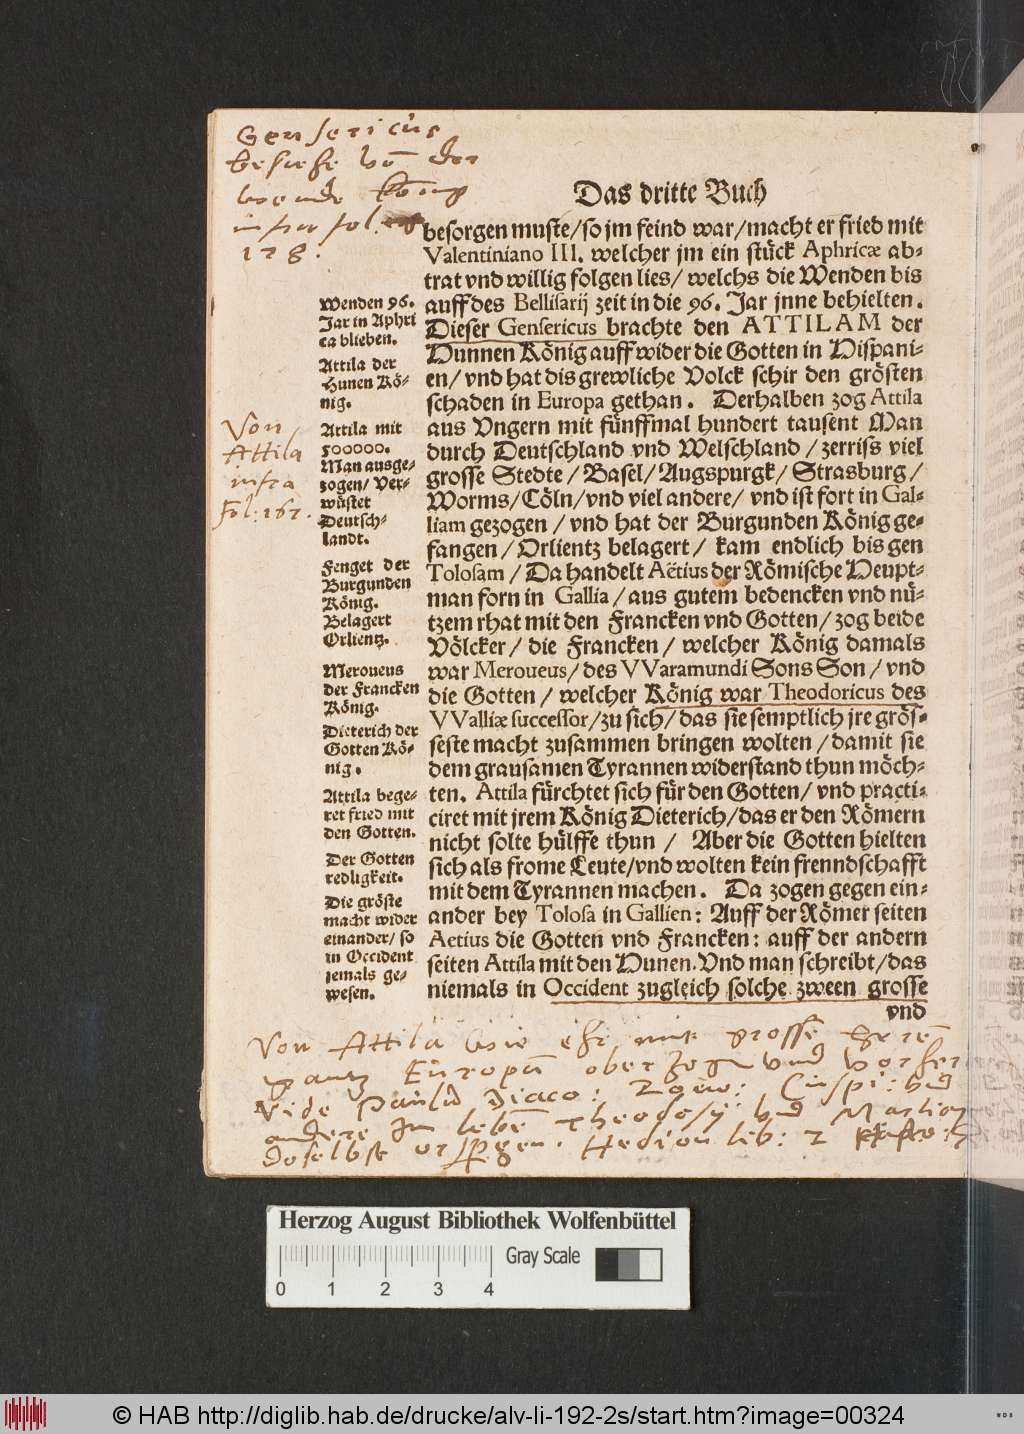 Gensericus
besiehe von der
wende König
infra fol.
178.
Das dritte Buch
besorgen muste/so jm feind war/macht er fried mit
Valentiniano III. welcher jm ein stück Aphricæ ab-
trat vnd willig folgen lies/ welchs die Wenden bis
auff des Bellisarij zeit in die 96. Jar jnne behielten.
Dieser Gensericus brachte den ATTILAM der
Hunnen König auff wider die Gotten in Hispani-
en/ vnd hat dis grewliche Volck schir den grösten
schaden in Europa gethan. Derhalben zog Attila
aus Vngern mit fünffmal hundert tausent Man
durch Deutschland vnd Welschland/ zerriss viel
grosse Stedte/ Basel/ Augspurgk/ Strasburg/
Worms/ Cöln/ vnd viel andere/ vnd ist fort in Gal-
liam gezogen/ vnd hat der Burgunden König ge-
fangen/ Orlientz belagert/ kam endlich bis gen
Tolosam/ Da handelt Aëtius der Römische Heupt-
man forn in Gallia/ aus gutem bedencken vnd nü-
tzem rhat mit den Francken vnd Gotten/ zog beide
Völcker/ die Francken/ welcher König damals
war Meroueus/ des VVaramundi Sons Son/ vnd
die Gotten/ welcher König war Theodoricus des
VValliæ successor/ zu sich/ das sie semptlich jre grös-
seste macht zusammen bringen wolten/ damit sie
dem grausamen Tyrannen widerstand thun möch-
ten. Attila fürchtet sich für den Gotten/ vnd practi-
ciret mit jrem König Dieterich/ das er den Römern
nicht solte hülffe thun/ Aber die Gotten hielten
sich als frome Leute/ vnd wolten kein frenndschafft
mit dem Tyrannen machen. Da zogen gegen ein-
ander bey Tolosa in Gallien: Auff der Römer seiten
Aetius die Gotten vnd Francken: auff der andern
seiten Attila mit den Hunen. Vnd man schreibt/ das
niemals in Occident zugleich solche zween grosse
vnd
Wenden 96.
Jar in Aphri
ca blieben.
Attila der
Hunen Kö-
nig.
Attila mit
500000.
Man ausge-
zogen/ Ver-
wüstet
Deutsch-
landt.
Fenget der
Burgunden
König.
Belagert
Orlientz.
Meroueus
der Francken
König.
Dieterich der
Gotten Kö-
nig.
Attila bege-
ret fried mit
den Gotten.
Der Gotten
redligkeit.
Die gröste
macht wider
einander/ so
in Occident
jemals ge-
wesen.
Von
Attila
infra
Fol: 167.
Von Attila wie ehr mit grosse
gantz Europam vnd
Vide Paulū Diaco: Cuspi: vnd
andere im leben Theodosij vnd Martian
Doselbst Hedion lib: 2
Herzog August Bibliothek Wolfenbüttel
Gray Scale
0 1 2 3 4
© HAB http://diglib.hab.de/drucke/alv-li-192-2s/start.htm?image=00324